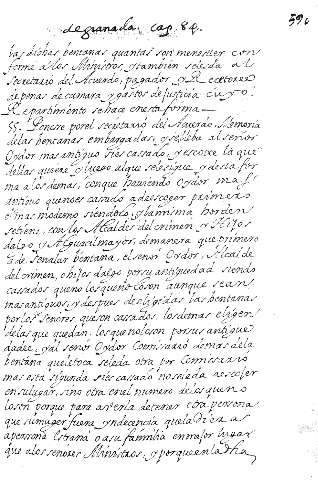 de granada. cap. 84.
las dichas bentanas quantas son menester con
forme a los Ministros, y tambien se le da al
Secretario del Acuerdo, pagador, y Receptores
de penas de camara y gastos de justicia, cuyo
Repartimento se hace en esta forma
55. Ponese por el secretario del Acuerdo, Memoria
de las bentanas embargadas, y se lleba al señor
Oydor mas antiguo si es casado, y escoxe la que
de ellas quiere, y luego al que se le sigue, y desta for
ma a los demas, con que haviendo Oydor mas
antiguo que no es casado a de escoger primero
el mas moderno siendolo, y la misma horden
se tiene, con los Alcaldes del crimen, y Hijos
dalgo y fiscal mayor, de manera que primero
a de señalar bentana, el señor Oydor, Alcalde
del crimen, o hijos dalgo por su antiguedad siendo
casados que no los que no lo son aunque sean
mas antiguos, y despues de elegidas las bentanas
por los señores que son casados, los demas eligen
de las que quedan, los que no lo son por su antigue
dad, y al señor Oydor Comissario demas de la
bentana que le toca se le da otra por Comissario
mas esta segunda si es casado no se le da a escojer
en su lugar, sino otra en el numero de los que no
lo son porque para averla de tener otra persona
que su muger fuera yndecencia que la diera a
persona estraña o a su familia en mejor lugar
que a los señores Ministros, y porque en la dha